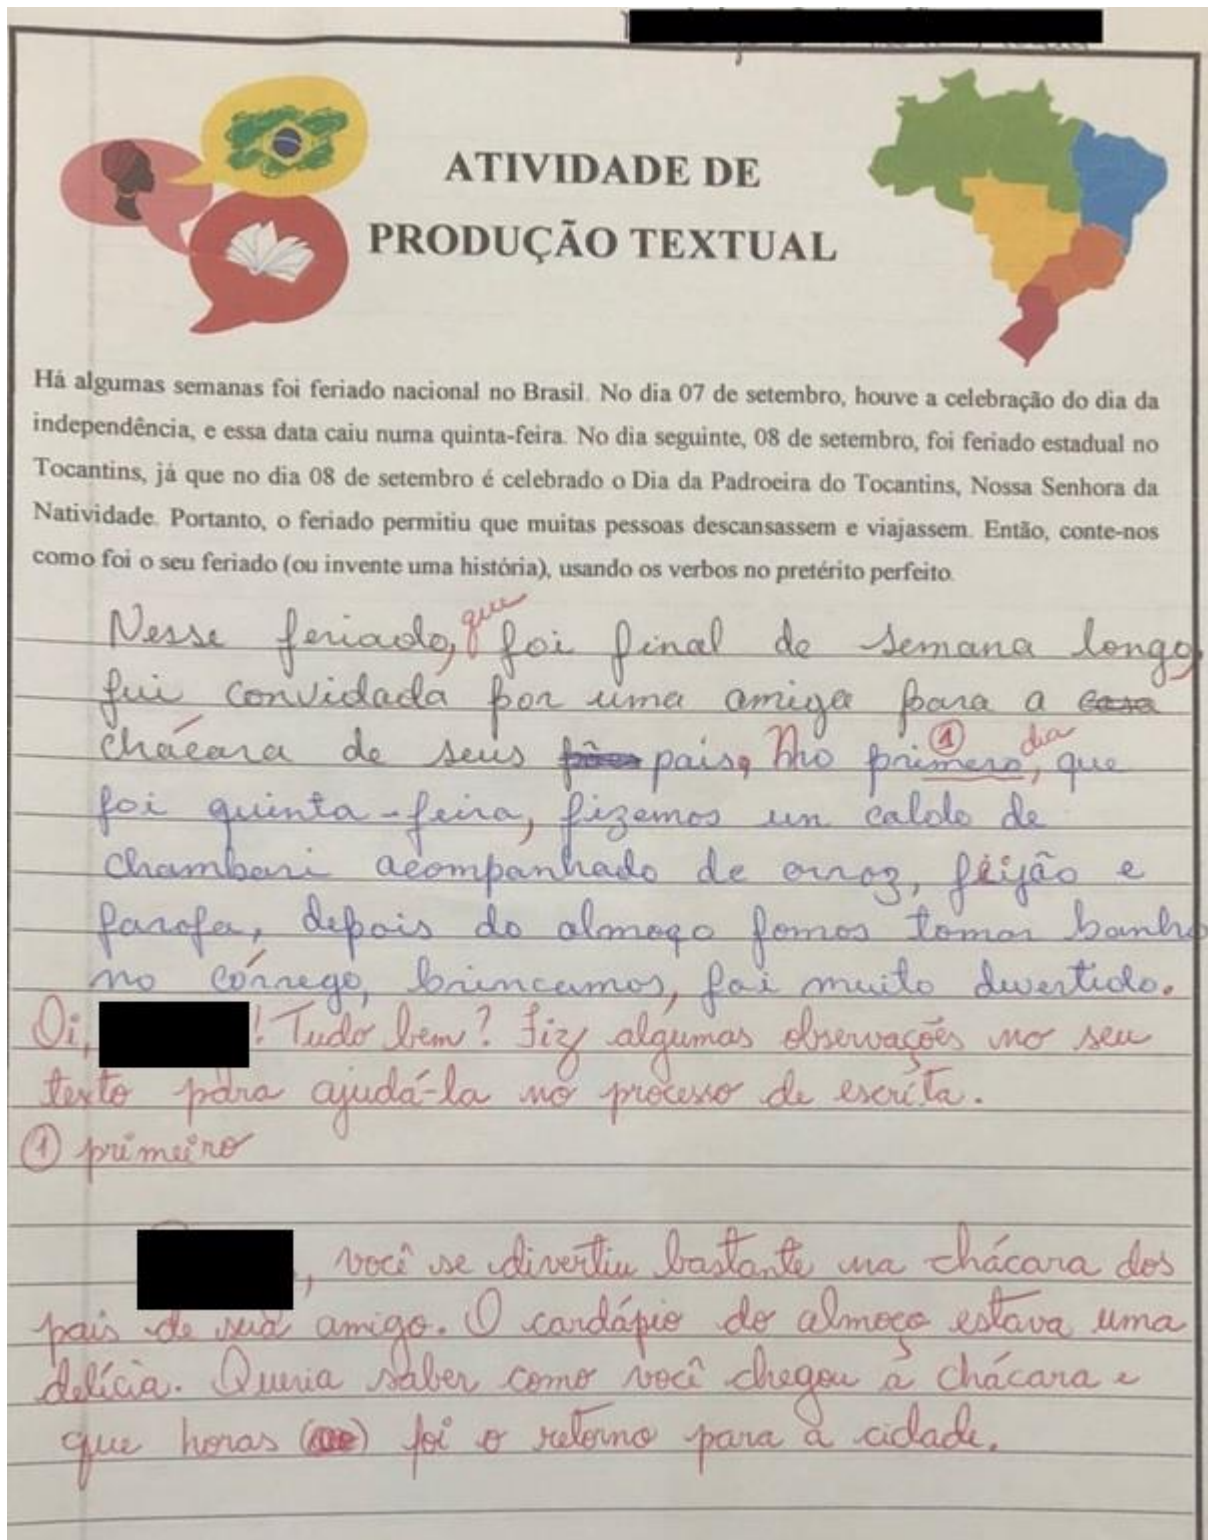 ATIVIDADE DE
PRODUÇÃO TEXTUAL
Há algumas semanas foi feriado nacional no Brasil. No dia 07 de setembro, houve a celebração do dia da
independência, e essa data caiu numa quinta-feira. No dia seguinte, 08 de setembro, foi feriado estadual no
Tocantins, já que no dia 08 de setembro é celebrado o Dia da Padroeira do Tocantins, Nossa Senhora da
Natividade. Portanto, o feriado permitiu que muitas pessoas descansassem e viajassem. Então, conte-nos
como foi o seu feriado (ou invente uma história), usando os verbos no pretérito perfeito.
Nesse feriado, que foi final de semana longo,
fui convidada por uma amiga para a casa
chácara de seus pais, No primero, dia que
foi quinta-feira, fizemos un caldo de
chambari acompanhado de arroz, feijão e
farofa, depois do almoço fomos tomar banho
no córrego, brincamos, foi muito divertido.
Oi, ! Tudo bem? Fiz algumas observações no seu
texto para ajudá-la no processo de escrita.
① primeiro
, você se divertiu bastante na chácara dos
pais de sua amigo. O cardápio do almoço estava uma
delícia. Queria saber como você chegou à chácara e
que horas foi o retorno para a cidade.